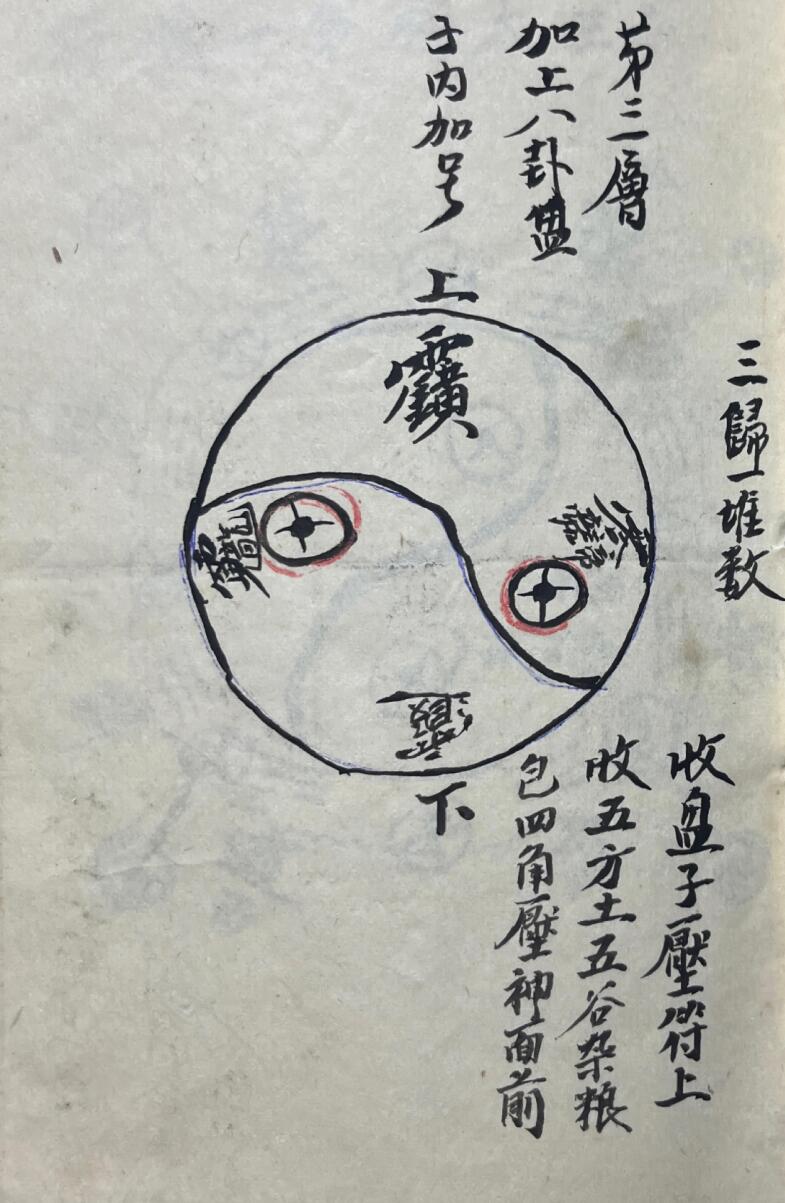 第三層
加上八卦盤
子内加号
三歸一堆数
上
下
收盘子壓符上
收五方土五谷杂粮
包四角壓神面前